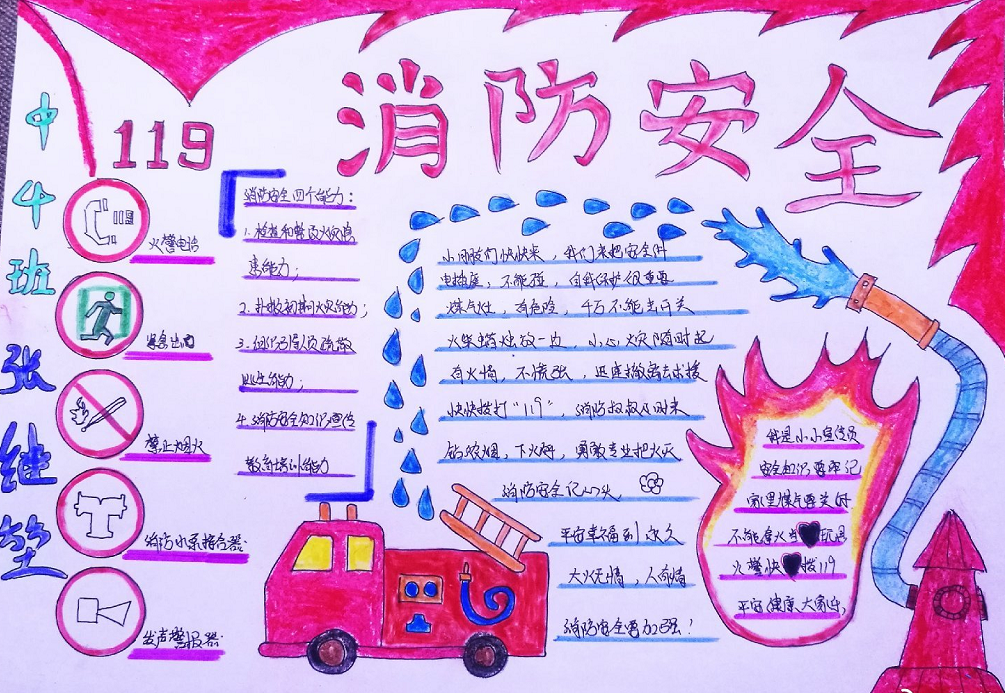 消防安全
119
中4班
张继堃
火警电话
紧急出口
禁止烟火
消防水泵接合器
发声警报器
消防安全四个能力：
1.检查和整改火灾隐
患能力；
2.扑救初期火灾能力；
3.组织人员疏散
逃生能力；
4.消防安全知识宣传
教育培训能力
小朋友们快快来，我们来把安全讲
电插座，不能碰，自我保护很重要
煤气灶，有危险，千万不能去开关
火柴蜡烛放一边，小心火灾随时起
有火情，不慌张，迅速撤离去求援
快快拨打"119"，消防叔叔
，下火海，勇敢专业把火灭
消防安全记心头
平安幸福到永久
大火无情，人有情
消防安全要加强！
我是小小宣传员
安全知识要牢记
家里煤气要关好
不能拿火当玩具
火警快拨119
平安健康大家